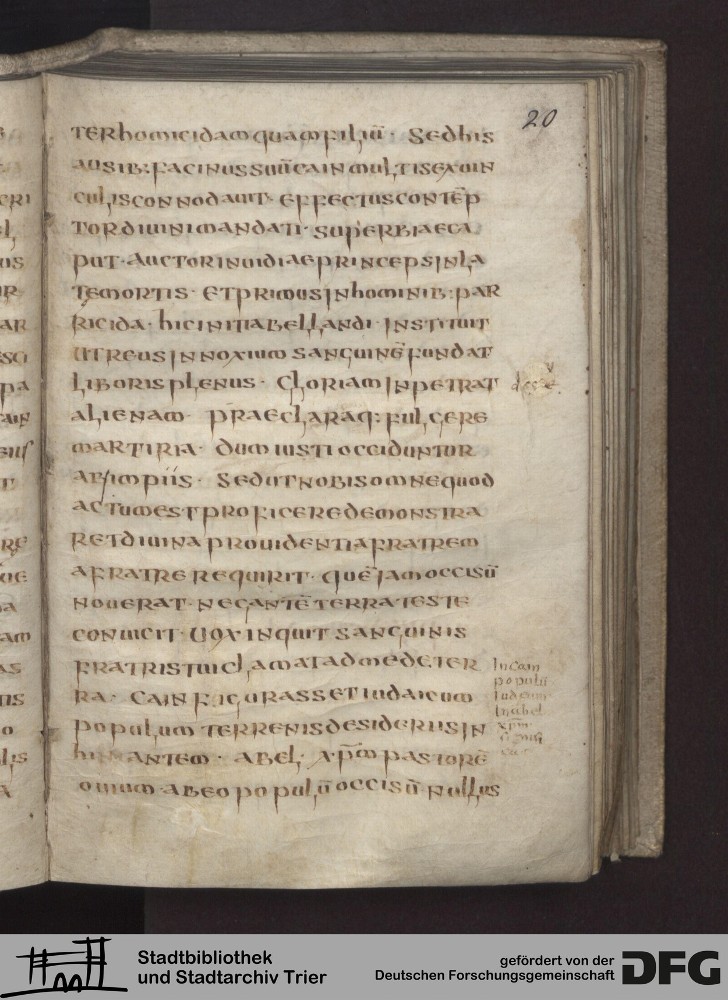 20
TER homicidam quam filiū · Sed his
ausib: facinus suū cain multis exuin
culis connodauit · effectus contēp
tor diuini mandati · superbiae ca
put · auctor inuidiae princeps in la
te mortis · et primus in hominib: par
ricida · hic initia bellandi · instituit
ut reus innoxium sanguinē fundat
liboris plenus · gloriam inpetrat
alienam · praeclaraq: fulgere
martiria · dum iusti occiduntur
ab impiis · sed ut nobis omne quod
actum est proficere demonstra
ret diuina prouidentia fratrem
a fratre requirit · quē iam occisū
nouerat · negantē terra teste
conuicit · uox inquit sanguinis
fratris tui clamat ad me de ter
ra · cain figurasset iudaicum
populum terrenis desideriis in
hiantem · abel · xp̄m pastorē
ouium · ab eo populū occisū nullus
In cain
populū
iudeum
In abel
xpm̄
Stadtbibliothek
und Stadtarchiv Trier
gefördert von der
Deutschen Forschungsgemeinschaft
DFG